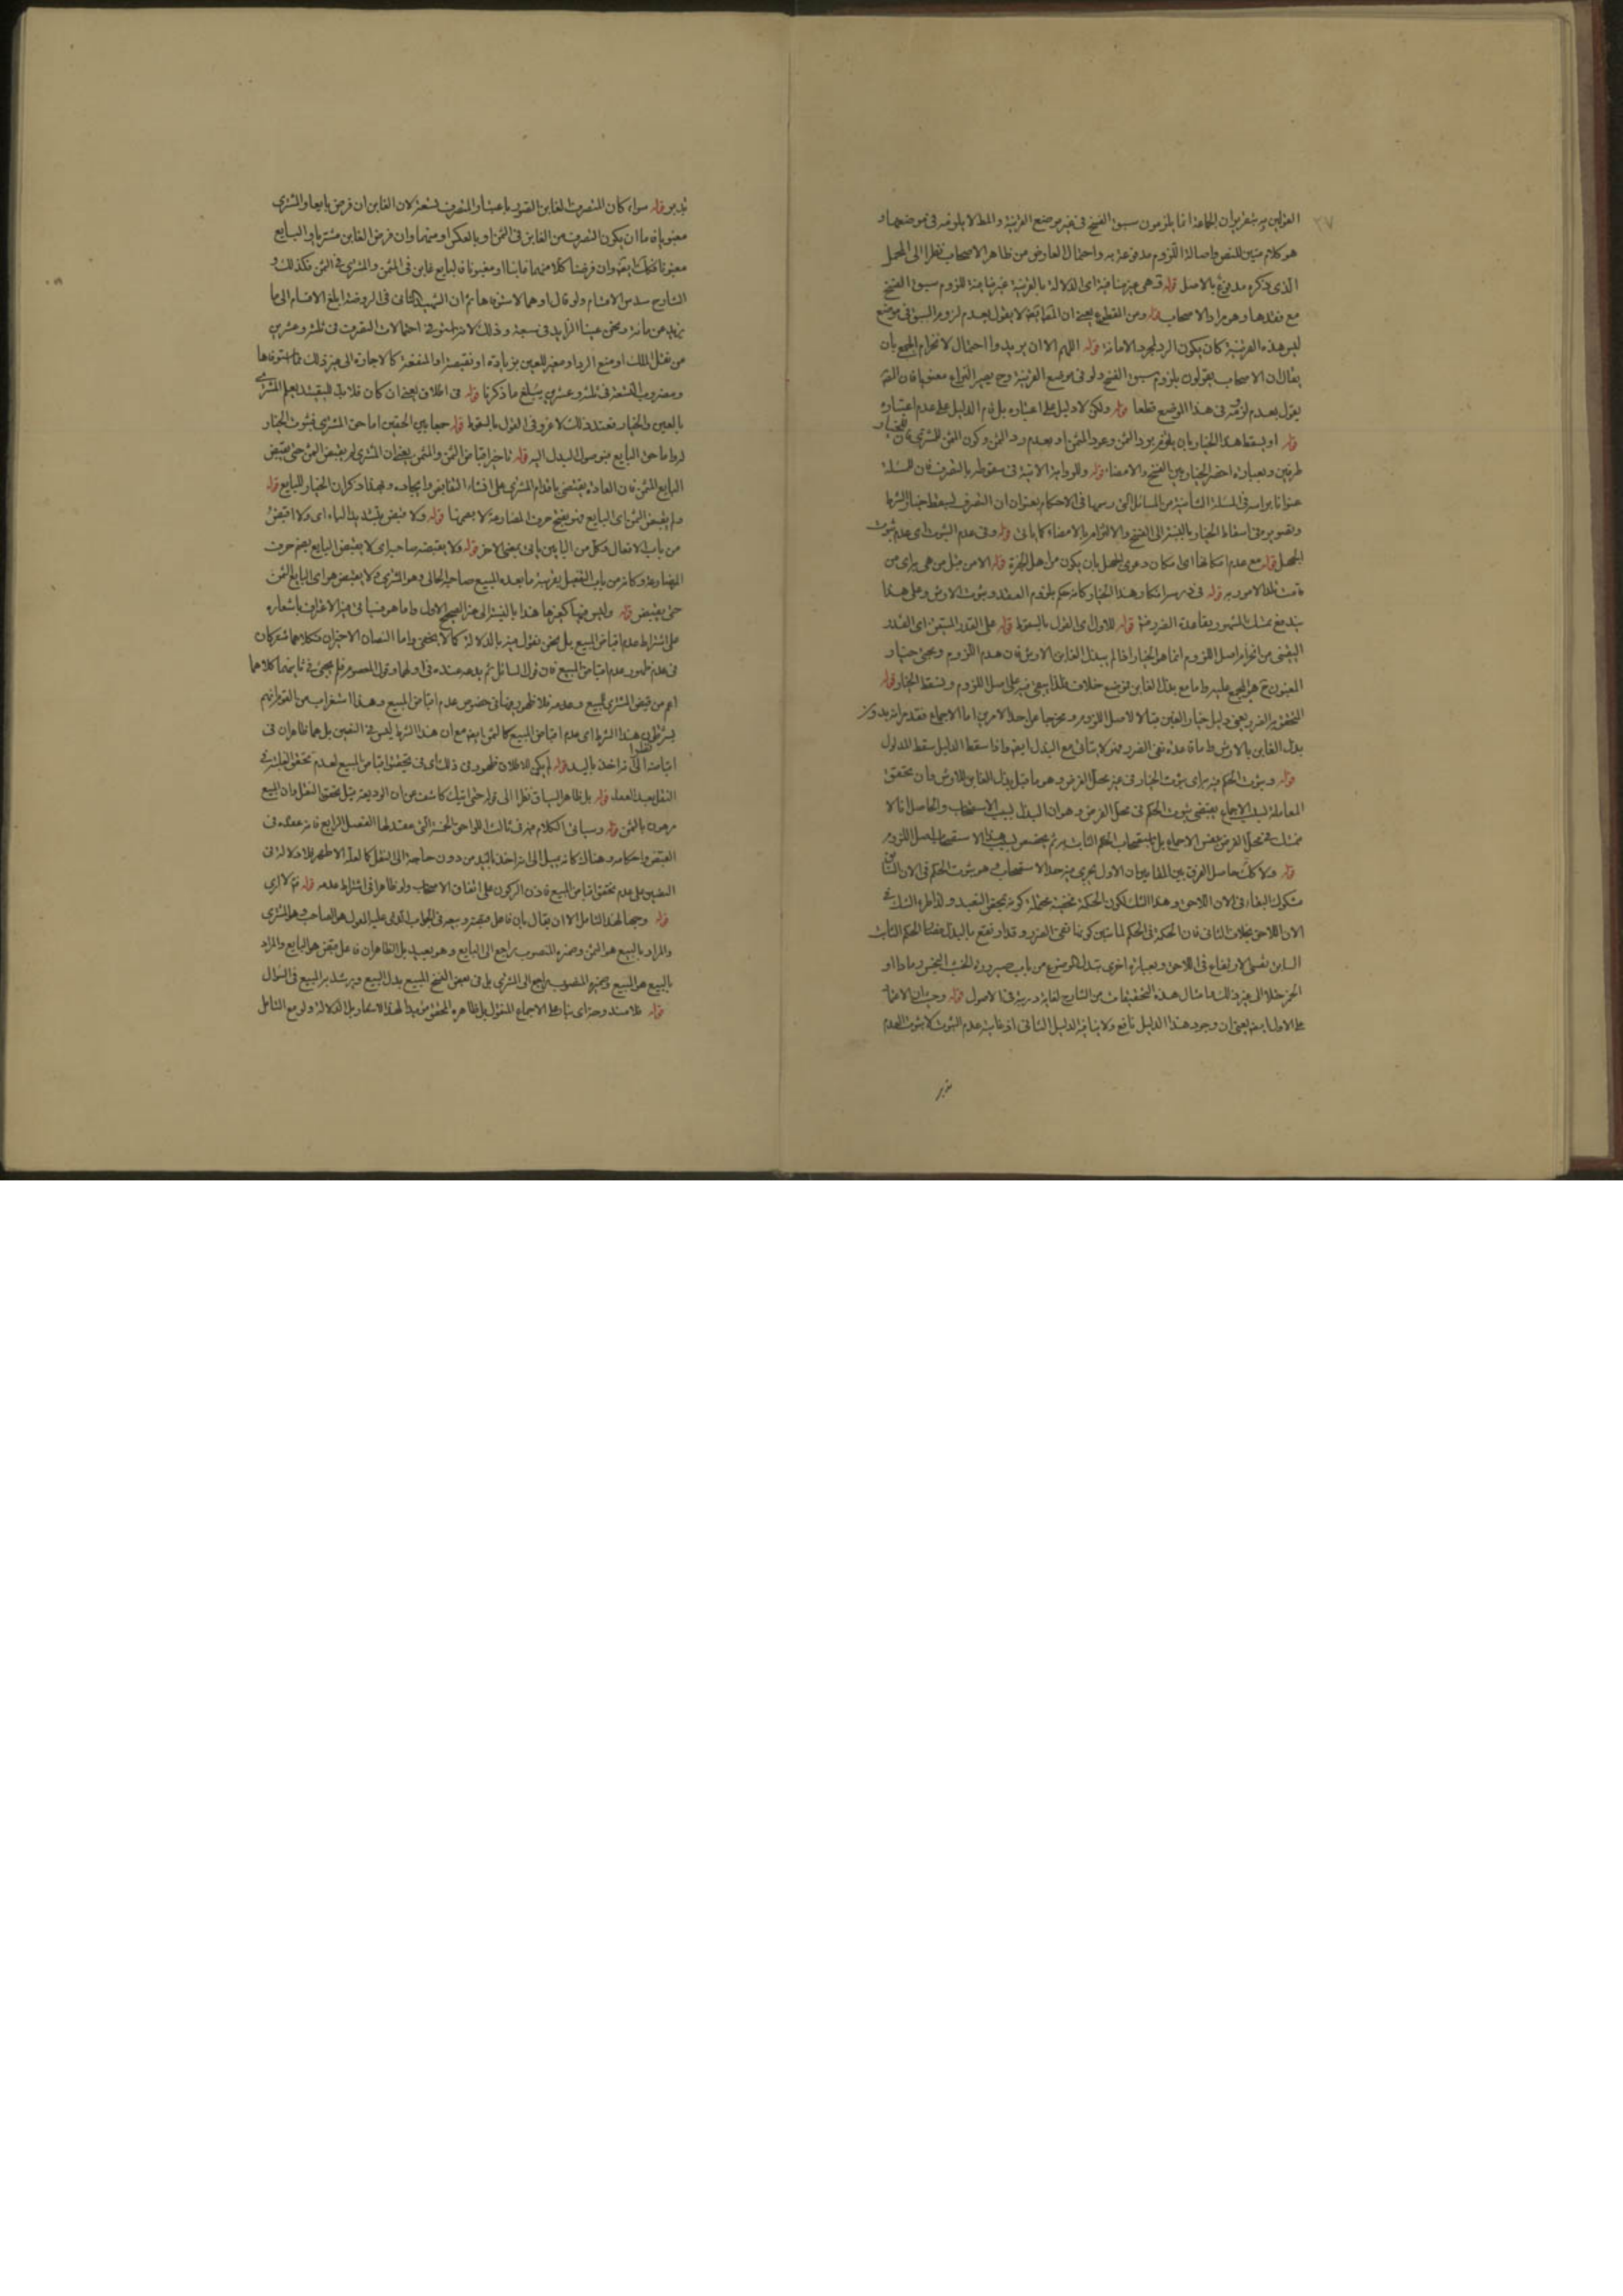 القولين به بتقريران الجماعة انما يلزمون سبق الفسخ فى غير موضع القرينة والمط لا يلزمه فى موضعها و
هو كلام متين للنص واصالة اللزوم مدفوعة به واحتمال العارض من ظاهر الاصحاب نظرا الى المحمل
الذى ذكره مدفوع بالاصل قوله هى غير منافية اى الدلالة بالقرينة غير منافية للزوم سبق الفسخ
مع فقدها وهو مراد الاصحاب قوله ومن القطع يعنى ان لا يقول بعدم لزوم السبق فى موضع
ليس هذه القرينة كان يكون الرد لمجرد الامانة قوله اللهم الا ان يريدوا احتمال لانخرام الجمع بان
يقال ان الاصحاب يقولون بلزوم سبق الفسخ ولو فى موضع القرينة وح يصير النزاع معنويا فان
يقول بعدم لزومه فى هذا الموضع قطعا قوله ولكن لا دليل على اعتباره بل قام الدليل على عدم اعتباره
قوله او يسقط هذا الخيار بان يلزم برد الثمن وعود المثمن او بعدم رد الثمن وكون المثمن للمشترى فان للخيار
طرفين وبعبارة احضر الخيار بين الفسخ والامضاء قوله وللرواية الاتية فى سقوطه بالتصرف فان المسئلة
عنوانا براسه فى المسئلة الثامنة من المسائل التى رسمها فى الاحكام بعنوان ان التصرف يسقط خيار الشرط
وتصوير معنى اسقاط الخيار بالنسبة الى الفسخ والالتزام بالامضاء كما ياتى قوله وفى عدم الثبوت اى عدم ثبوت
الجهل قوله مع عدم امكانها اى امكان دعوى الجهل بان يكون من اهل الخبرة قوله الا من مثل من هى براى من
قامت تلك الامور به قوله وهذا الخيار كانه حكم بلزوم العقد وثبوت الارش وعلى هذا
يندفع تمسك المشهور بقاعدة الضرر قوله للاول اى القول بالسقوط قوله على القدر المتيقن اى القدر
اليقينى من انخرام اصل اللزوم انما هو الخيار اذا لم يبذل الغابن الارش فان عدم اللزوم ومجئ خيار
المغبون ح هو المجمع عليه واما مع بذل الغابن فموضع خلاف فلذا يبقى فيه على اصل اللزوم ويسقط الخيار قوله
لتحقق الضرر يعنى دليل خيار الغبن قبالا لاصل اللزوم ومخرجا عنه احد الامرين اما الاجماع فقد مر انه بدون
بذل الغابن بالارش واما قاعدة نفى الضرر فهو لا يتاتى مع البذل ايضا فاذا سقط الدليل سقط المدلول
قوله وثبوت الحكم فيه براى ثبوت الخيار فى غير محل الفرض وهو ما قبل بذل الغابن للارش وان تحقق
المعاملة الاجماع يقتضى ثبوت الحكم فى محل الفرض وهو ان البذل لسبب الاستصحاب والحاصل انا لا
نتمسك فى محل الفرض بنفس الاجماع بل باستصحاب الحكم الثابت به ثم يخصص بسبب هذا الاستصحاب اصل اللزوم
قوله ولا كك حاصل الفرق بين المقامين ان الاول يجرى فيه حد الاستصحاب وهو ثبوت الحكم فى الان السابق
مشكوك البقاء فى الان اللاحق وهذا الشك لكون الحكمة مخفية محتملة كونه بمحض التعبد ولذا طرء الشك فى
الان اللاحق بخلاف الثانى فان الحكمة فى الحكم لما تبين كونها نفى الضرر وقد ارتفع بالبذل يقضا الحكم الثابت
السابق نفسى الارتفاع فى اللاحق وبعبارة اخرى تبدل الموضوع من باب صيرورة الخشب النجس رمادا او
الخمر خلا الى غير ذلك وامثال هذه التحقيقات من الشارح لغاية دربته فى الاصول قوله وجهان الاعتماد
على الاول ايضا يعنى ان وجود هذا الدليل نافع ولا ينافيه الدليل الثانى اذ غايته عدم الثبوت لا ثبوت العدم
تدبر
تدبر قوله سواء كان المتصرف الغابن القول باعتبار المتصرف تسعة لان الغابن ان فرض بايعا والمشترى
مغبونا فاما ان يكون التصرف من الغابن فى الثمن او بالعكس او منهما وان فرض الغابن مشتريا والبايع
مغبونا فكذلك ايضا وان فرضنا كلا منهما غابنا او مغبونا فالبايع غابن فى المثمن والمشترى فى الثمن فكذلك و
الشارح سدس الاقسام ولو قال او هما لاستوفاها ثم ان الشهيد الثانى فى الروضة ابلغ الاقسام الى ما
يزيد عن مائة ونحن عينا الزايد فى تسعة وذلك لانه استوفى احتمالات التصرف فى ثلثة وعشرين
من نقل الملك او منع الرد او مغير للعين بزيادة او نقيصة او المنفعة كالاجارة الى غير ذلك فاستوفاها
ومضروب التسعة فى ثلثة وعشرين يبلغ ما ذكرنا قوله فى اطلاق يعنى ان كان فلا بد للتقييد بعلم المشترى
بالعين والخيار فعند ذلك لا غرو فى القول بالسقوط قوله جمعا بين الحقين اما حق المشترى فثبوت الخيار
له واما حق البايع فبوصول البدل اليه قوله تاخير اقباض الثمن والمثمن يعنى ان المشترى لم يقبض الثمن حتى يقبض
البايع المثمن فان العادة يقتضى باقدام المشترى على انشاء التقابض وايجاده وبهذا ذكر ان الخيار للبايع قوله
ولم يقبض الثمن اى البايع فهو بفتح حرف المضارعة لا بضمها قوله ولا قبض بتشديد الياء اى ولا اقبض
من باب الافعال وكل من البابين ياتى بمعنى الاخر قوله ولا يقبضه صاحبه اى لا يقبض البايع بضم حرف
المضارعة وكانه من باب التفعيل بقرينة ما بعده المبيع صاحبه الحالى وهو المشترى ولا يقبض هو اى البايع الثمن
حتى يقبض قوله وليس فيها كغيرها هذا بالنسبة الى خبر الصحيح الاول واما هو فسياتى فيه الاعتراف باشعاره
على اشتراط عدم اقباض المبيع بل نحن نقول فيه بالدلالة كما لا يخفى واما النصان الاخيران فكلاهما مشتركان
فى عدم ظهور عدم اقباض المبيع فان قول السائل ثم يدعه عنده فى اولهما وقول المعصوم فلم يجئ فى ثانيهما كلاهما
اعم من قبض المشترى للمبيع وعدمه فلا ظهور فيهما فى خصوص عدم اقباض المبيع وهذا استغراب من القوم انهم
يشترطون هذا الشرط اى عدم اقباض المبيع كالثمن ايضا مع ان هذا الشرط ليس فى النصين بل هما ظاهران فى
اقباضه قوله لم يكن للاطلاق ظهور فى ذلك اى فى تحقيق اقباض المبيع لعدم تحقق
النقل بعد العقد قوله بل ظاهر السياق نظرا الى قوله حتى اتيك كاشف عن ان الوديعة قبل تحقق النقل وان المبيع
مرهون بالثمن قوله وسياتى الكلام فيه فى ثالث اللواحق الخمسة التى عقد لها الفصل الرابع فانه عقده فى
القبض واحكامه وهناك كانه يميل الى انه اخذ باليد من دون حاجة الى النقل كما لعله الاظهر فلا دلالة فى
النصين على عدم تحقق اقباض المبيع فاذن الركون على اتفاق الاصحاب ولو ظاهرا فى اشتراط عدمه قوله ثم لا ارى
قوله وجها لهذا التامل الا ان يقال بان فاعل قبضه وبيعه فى الجواب هو الصاحب وهو المشترى
والمراد بالمبيع هو الثمن وضميره المنصوب راجع الى البايع وهو بعيد بل الظاهر ان فاعل قبض هو البايع والمراد
بالبيع هو المبيع وضميره المنصوب راجع الى المشترى بل فى بعض النسخ المبيع بدل البيع ويرشد به المبيع فى السؤال
قوله فلا مندوحة اى بناء على الاجماع المنقول بل ظاهره المحقق مؤيدا لهذا الاشعار بل الدلالة ولو مع التامل